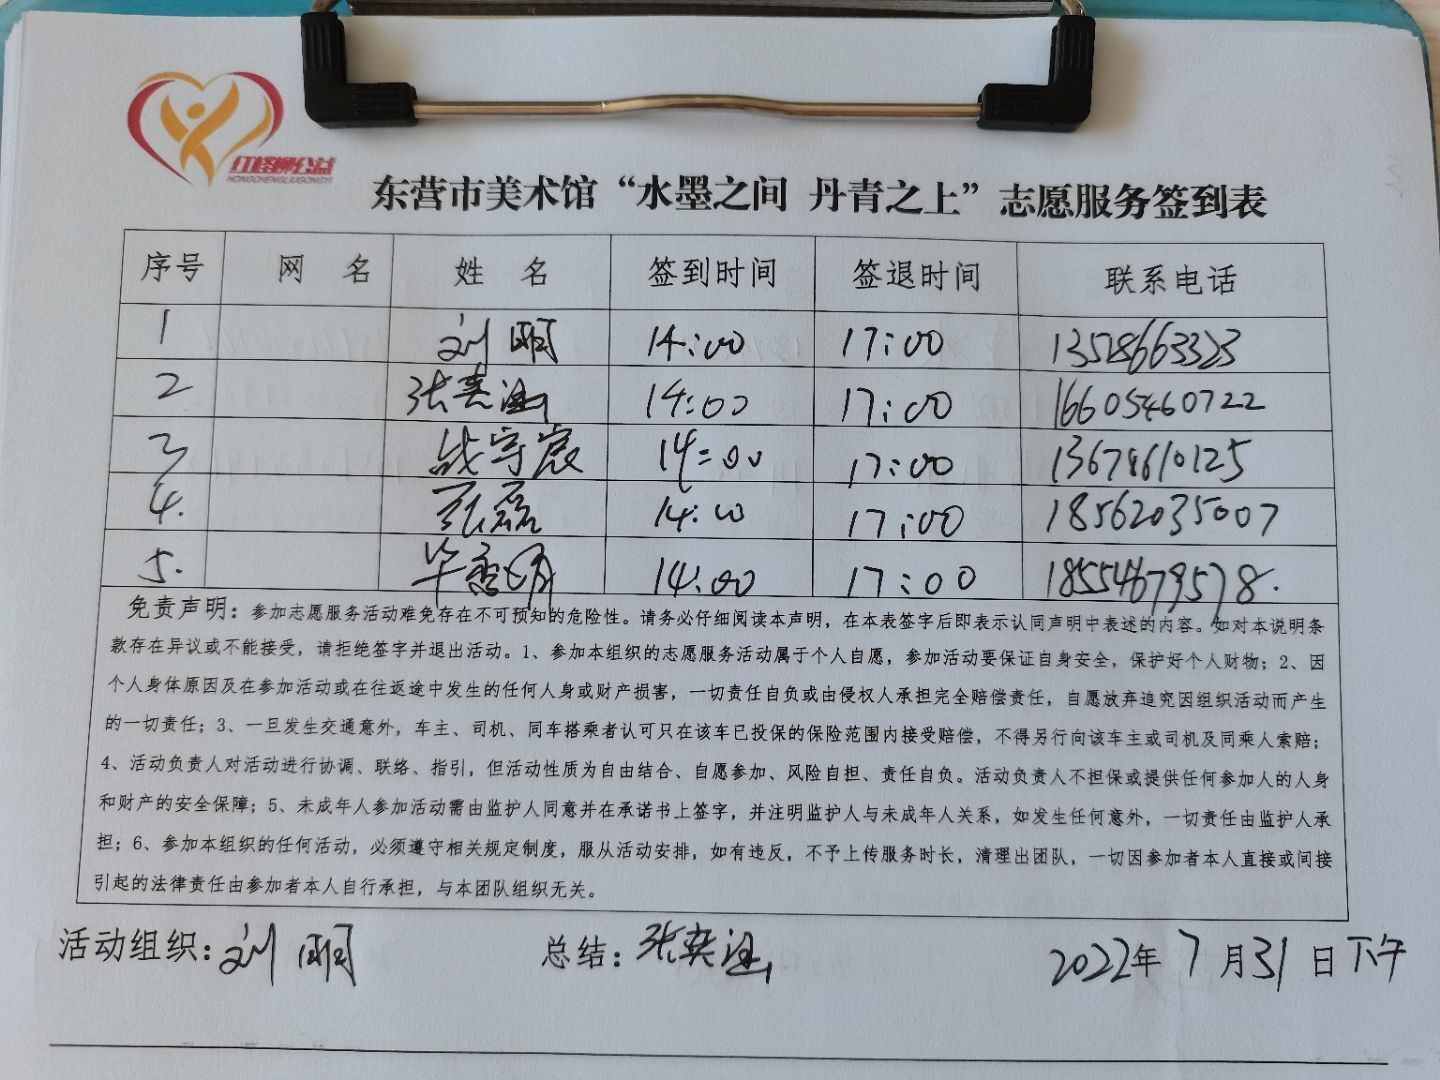 红柽柳公益
HONGCHENGLIUGONGYI
东营市美术馆“水墨之间 丹青之上”志愿服务签到表
序号 网 名 姓 名 签到时间 签退时间 联系电话
1 刘 14:00 17:00 13528663323
2 张英涵 14:00 17:00 16605460722
3 战宇宸 14:00 17:00 13678610125
4. 张磊 14:00 17:00 18562035007
5. 毕 14:00 17:00 18554679578.
免责声明：参加志愿服务活动难免存在不可预知的危险性。请务必仔细阅读本声明，在本表签字后即表示认同声明中表述的内容。如对本说明条
款存在异议或不能接受，请拒绝签字并退出活动。1、参加本组织的志愿服务活动属于个人自愿，参加活动要保证自身安全，保护好个人财物；2、因
个人身体原因及在参加活动或在往返途中发生的任何人身或财产损害，一切责任自负或由侵权人承担完全赔偿责任，自愿放弃追究因组织活动而产生
的一切责任；3、一旦发生交通意外，车主、司机、同车搭乘者认可只在该车已投保的保险范围内接受赔偿，不得另行向该车主或司机及同乘人索赔；
4、活动负责人对活动进行协调、联络、指引，但活动性质为自由结合、自愿参加、风险自担、责任自负。活动负责人不担保或提供任何参加人的人身
和财产的安全保障；5、未成年人参加活动需由监护人同意并在承诺书上签字，并注明监护人与未成年人关系，如发生任何意外，一切责任由监护人承
担；6、参加本组织的任何活动，必须遵守相关规定制度，服从活动安排，如有违反，不予上传服务时长，清理出团队，一切因参加者本人直接或间接
引起的法律责任由参加者本人自行承担，与本团队组织无关。
活动组织：刘 总结：张英涵 2022年 7 月 31 日 下午